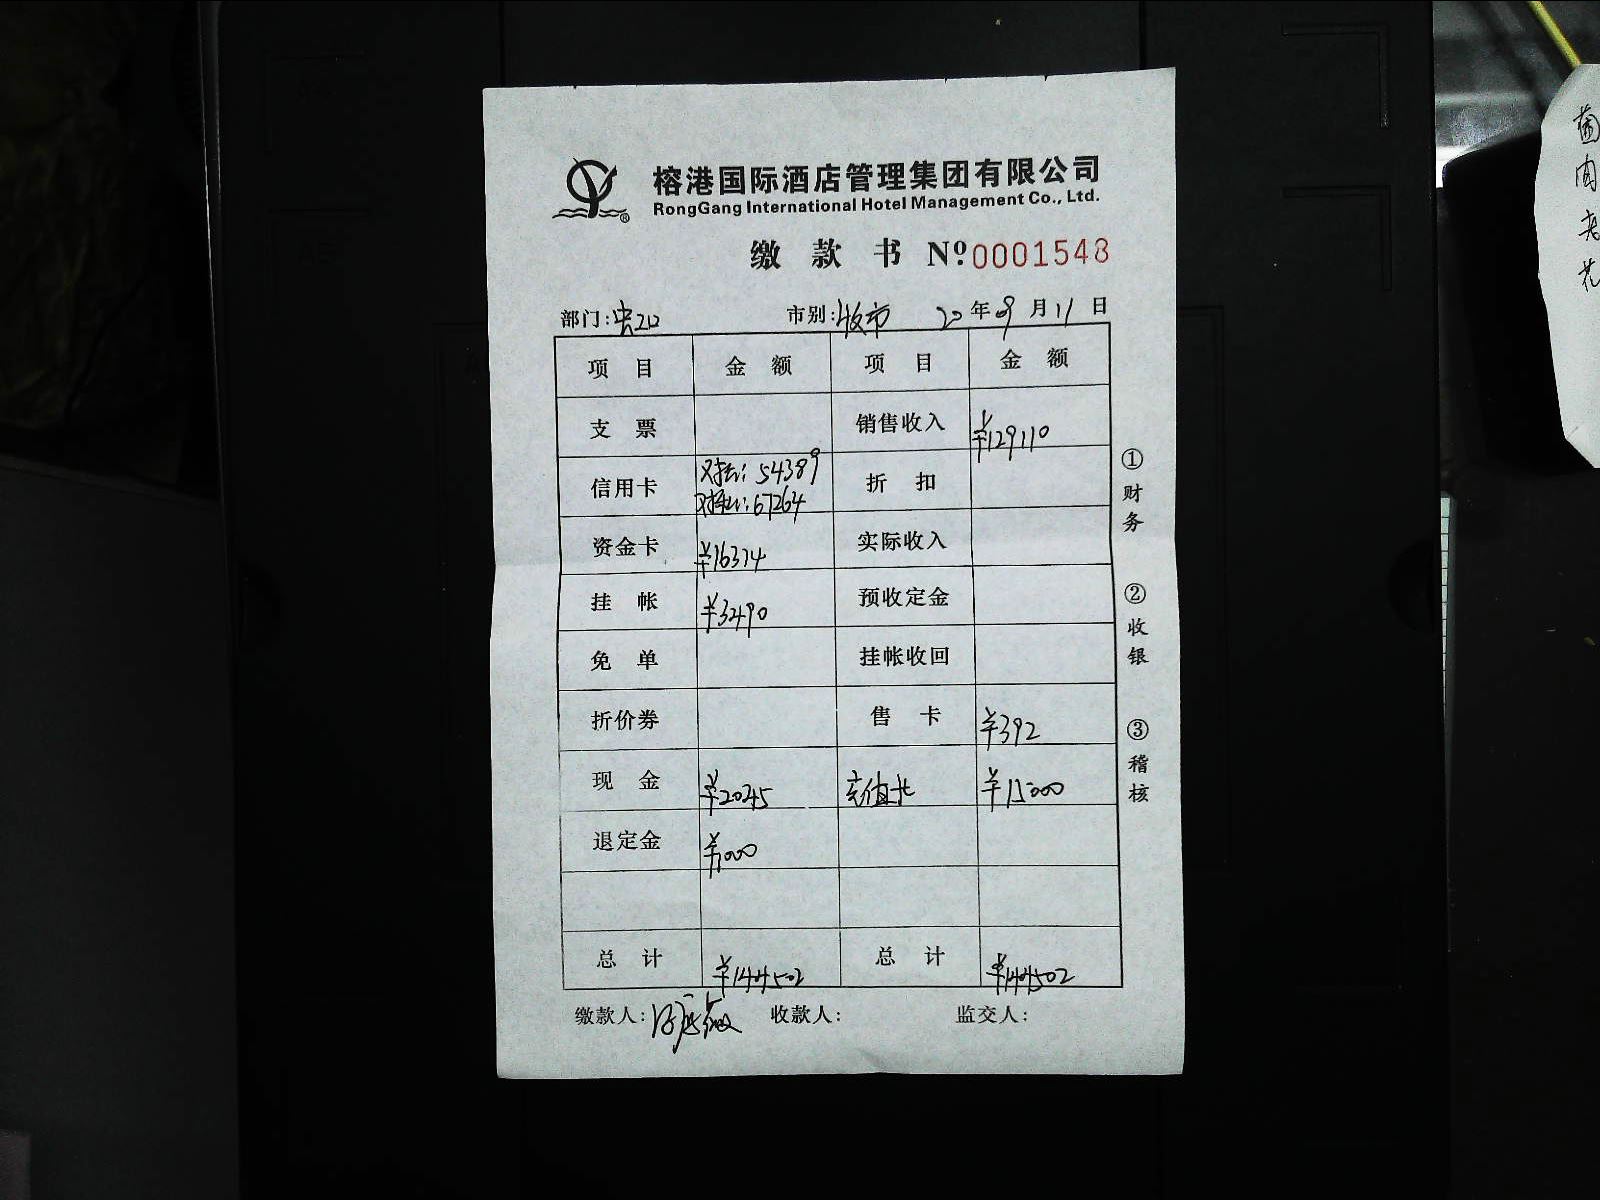 榕港国际酒店管理集团有限公司
RongGang International Hotel Management Co., Ltd.
缴 款 书 Nº 0001548
部门: 市别:收市 20年9月11日
项 目 金 额 项 目 金 额
支 票 销售收入 ¥129110
信用卡 54389
67264
折 扣
资金卡 ¥16314 实际收入
挂 帐 ¥3490 预收定金
免 单 挂帐收回
折价券 售 卡 ¥392
现 金 ¥2045 充值卡 ¥15000
退定金 ¥1000
总 计 ¥144502 总 计 ¥144502
缴款人: 收款人: 监交人:
①财务
②收银
③稽核